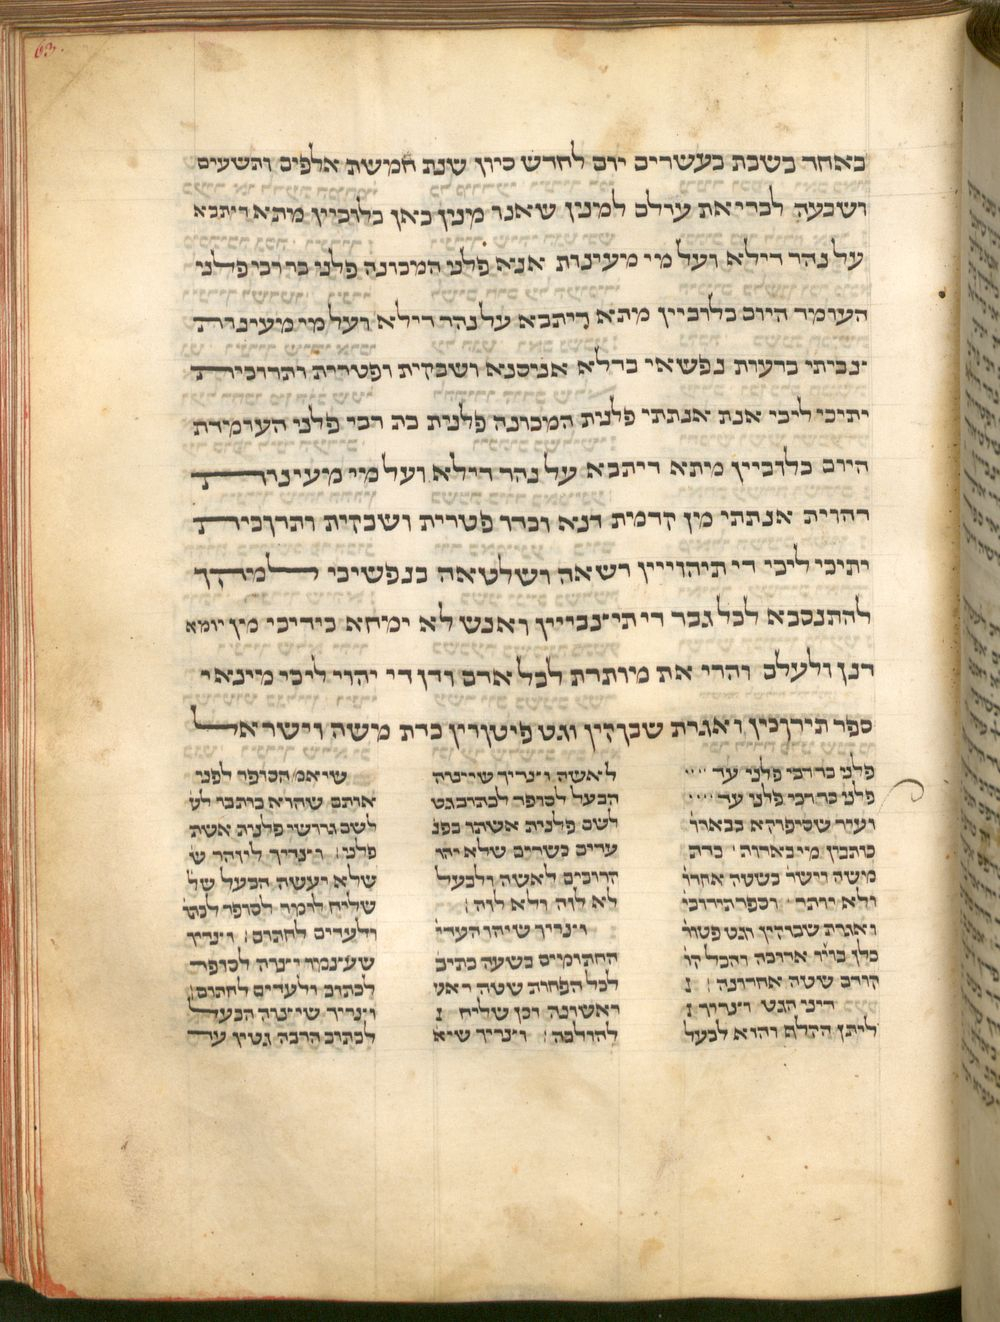 באחד בשבת בעשרים יום לחדש סיון שנת חמשת אלפים ותשעים
ושבעה לבריאת עולם למנין שאנו מינין כאן בלובייץ מתא דיתבא
על נהר דילא ועל מי מעינות אנא פלני המכונה פלני בר רבי פלני
העומד היום בלובייץ מתא דיתבא על נהר דילא ועל מי מעינות
צביתי ברעות נפשאי בדלא אניסנא ושבקית ופטרית ותרוכית
יתיכי ליכי אנת אנתתי פלנית המכונה פלנית בת רבי פלני העומדת
היום בלובייץ מתא דיתבא על נהר דילא ועל מי מעינות
דהוית אנתתי מן קדמית דנא וכדו פטרית ושבקית ותרוכית
יתיכי ליכי די תיהוייין רשאה ושלטאה בנפשיכי למהך
להתנסבא לכל גבר די תיצבייין ואנש לא ימחא בידיכי מן יומא
דנן ולעלם והרי את מותרת לכל אדם ודן די יהוי ליכי מינאי
ספר תירוכין ואגרת שבוקין וגט פיטורין כדת משה וישראל
פלני בר רבי פלני עד
פלני בר רבי פלני עד
ועיר שסיפוקא בבארו
סותבין מי בארות כדת
משה ויש׳ בשטה אחרו
ולא יותר וספר תירוכי
ואגרת שבוקין וגט פטור
כלן בוי״ו ארוכה והכל קו
קודם שטה אחרונה
דיני הגט וצריך
ליתן הקלם והוא לבעל
לאשה וצריך שיצוה
הבעל לסופר לכתוב גט
לשם פלנית אשתו בפנ
עדים כשרים שלא יהו
קרובים לאשה ולבעל
לא לזה ולא לזה
וצריך שיהו העדי
החתומים בשעה כתיב
לכל הפחות שטה ראש
ראשונה וכן שליח
להולכה וצריך שיא
שיאמ׳ הסופר לפני
אותם שהוא כותבו לש
לשם גרושי פלנית אשת
פלני וצריך ליזהר ש
שלא יעשה הבעל של
שליח לומר לסופר לכתו
ולעדים לחתום וצריך
שעצמו יצוה לסופר
לכתוב ולעדים לחתום
וצריך שיצוה הבעל
לכתוב הרבה גטין עד